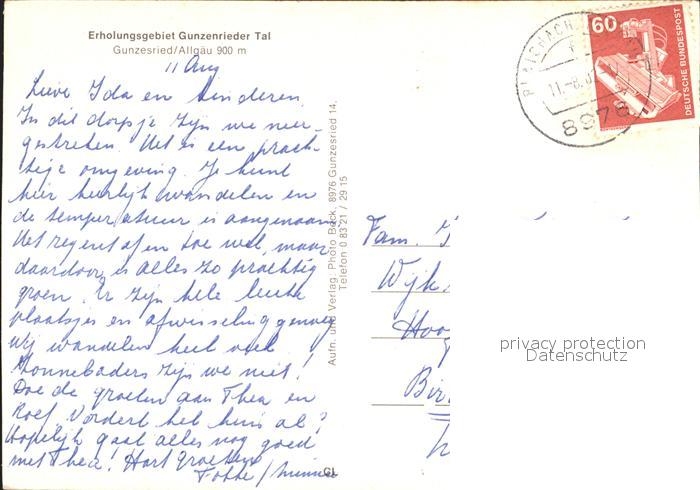 Erholungsgebiet Gunzenrieder Tal
Gunzesried/Allgäu 900 m
11 Aug
Lieve Ida en kinderen,
In dit dorpje zijn we neer-
gestreken. Het is een prach-
tige omgeving. Je kunt
hier heerlijk wandelen en
de temperatuur is aangenaam
Het regent af en toe wel, maar
daardoor is alles zo prachtig
groen. Er zijn hele leuke
plaatsjes en afwisseling genoeg
Wij wandelen heel veel
Zonnebaders zijn we niet!
Doe de groeten aan Thea en
Roef. Vordert het huis al?
Hopelijk gaat alles nog goed
met Thea! Hart. groeten
Aufn. und Verlag: Photo Beck, 8976 Gunzesried 14,
Telefon 0 83 21 / 29 15
GL
60
DEUTSCHE BUNDESPOST
11.-8.
8976
Fam.
Wijk
Hoo
Bir
privacy protection
Datenschutz